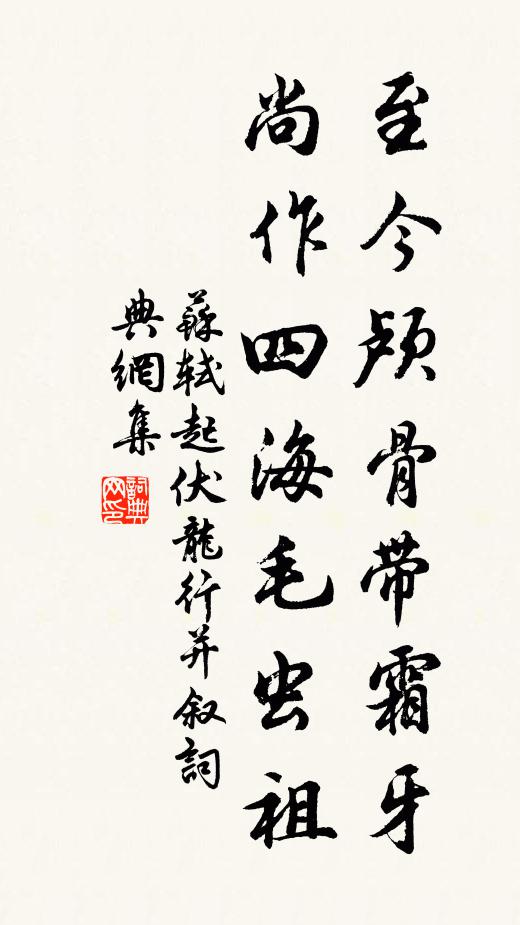 至今颅骨带霜牙
尚作四海毛虫祖
蘇軾起伏龍行并叙詞
典網集
詞典
网印